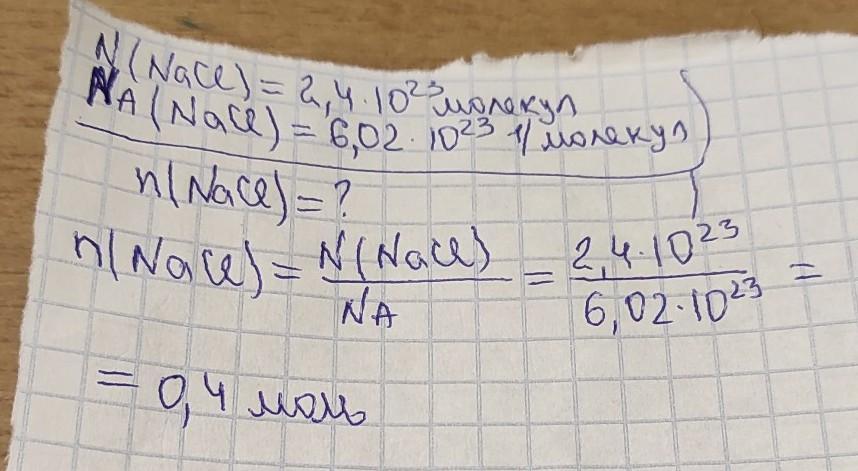 N(NaCl) = 2,4·10²³ молекул
NA(NaCl) = 6,02·10²³ 1/молекул
n(NaCl) = ?
n(NaCl) = N(NaCl)/NA = 2,4·10²³/6,02·10²³ =
= 0,4 моль